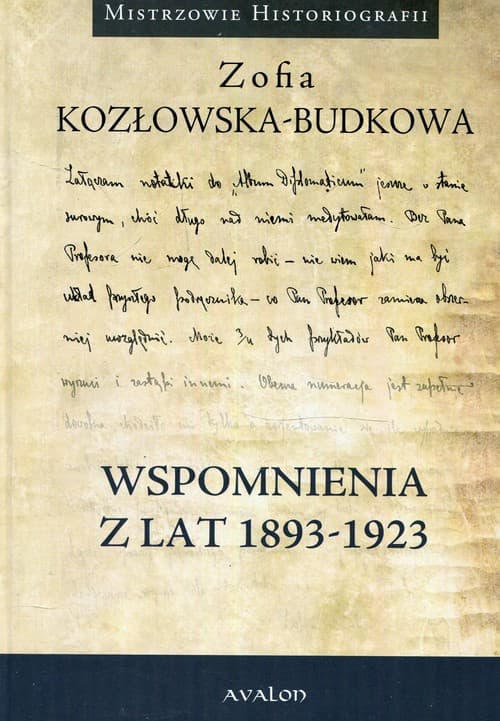 MISTRZOWIE HISTORIOGRAFII
Zofia
KOZŁOWSKA-BUDKOWA
Załączam notatki do „Album Diplomaticum” jeszcze w stanie
surowym, choć długo nad niemi medytowałam. Bez Pana
Profesora nie mogę dalej robić – nie wiem jaki ma być
układ przyszłego podręcznika – co Pan Profesor zamierza obszer-
niej uwzględnić. Może 3/4 tych przykładów Pan Profesor
wyrzuci i zastąpi innemi. Obecna numeracja jest zupełnie
dowolna, chodziło mi tylko o
WSPOMNIENIA
Z LAT 1893-1923
AVALON